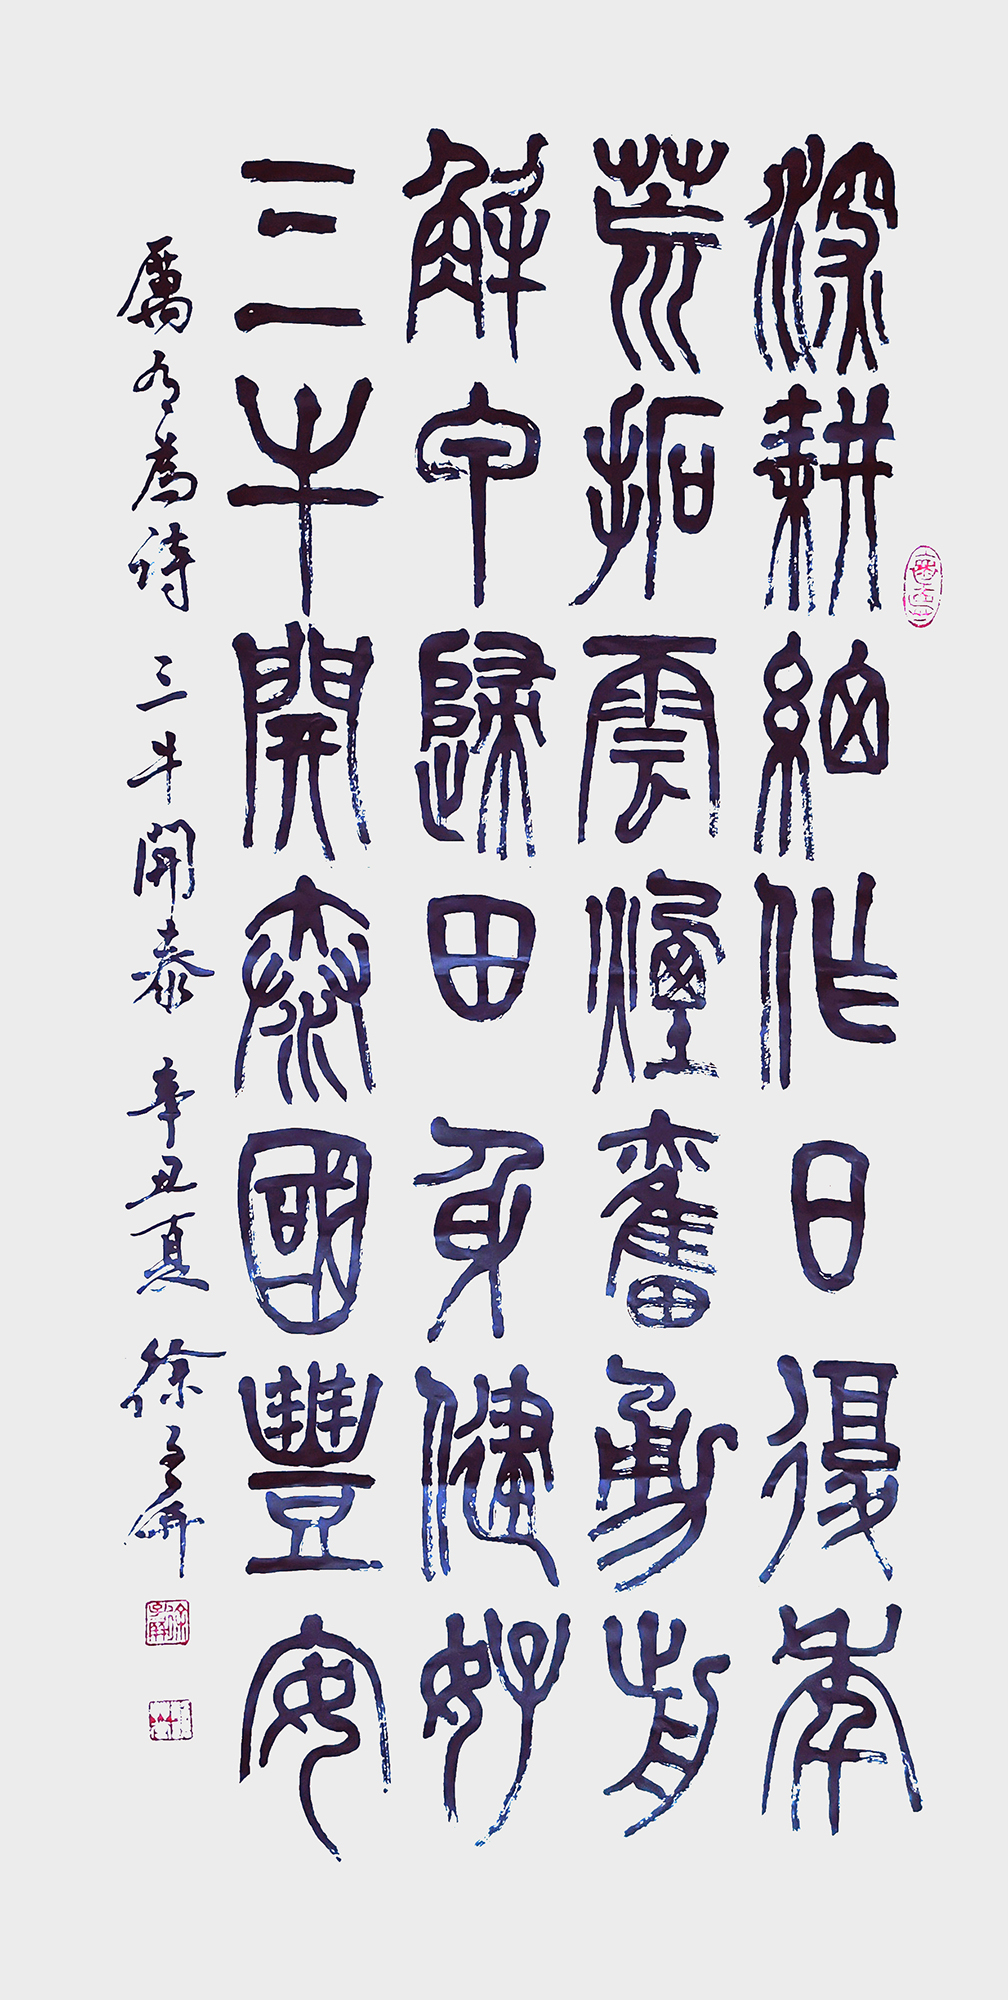 深耕細作日復年
荒拓雲煙奮勇前
解甲歸田身健好
三牛開泰國豐安
厲有為詩 三牛開泰 辛丑夏 徐